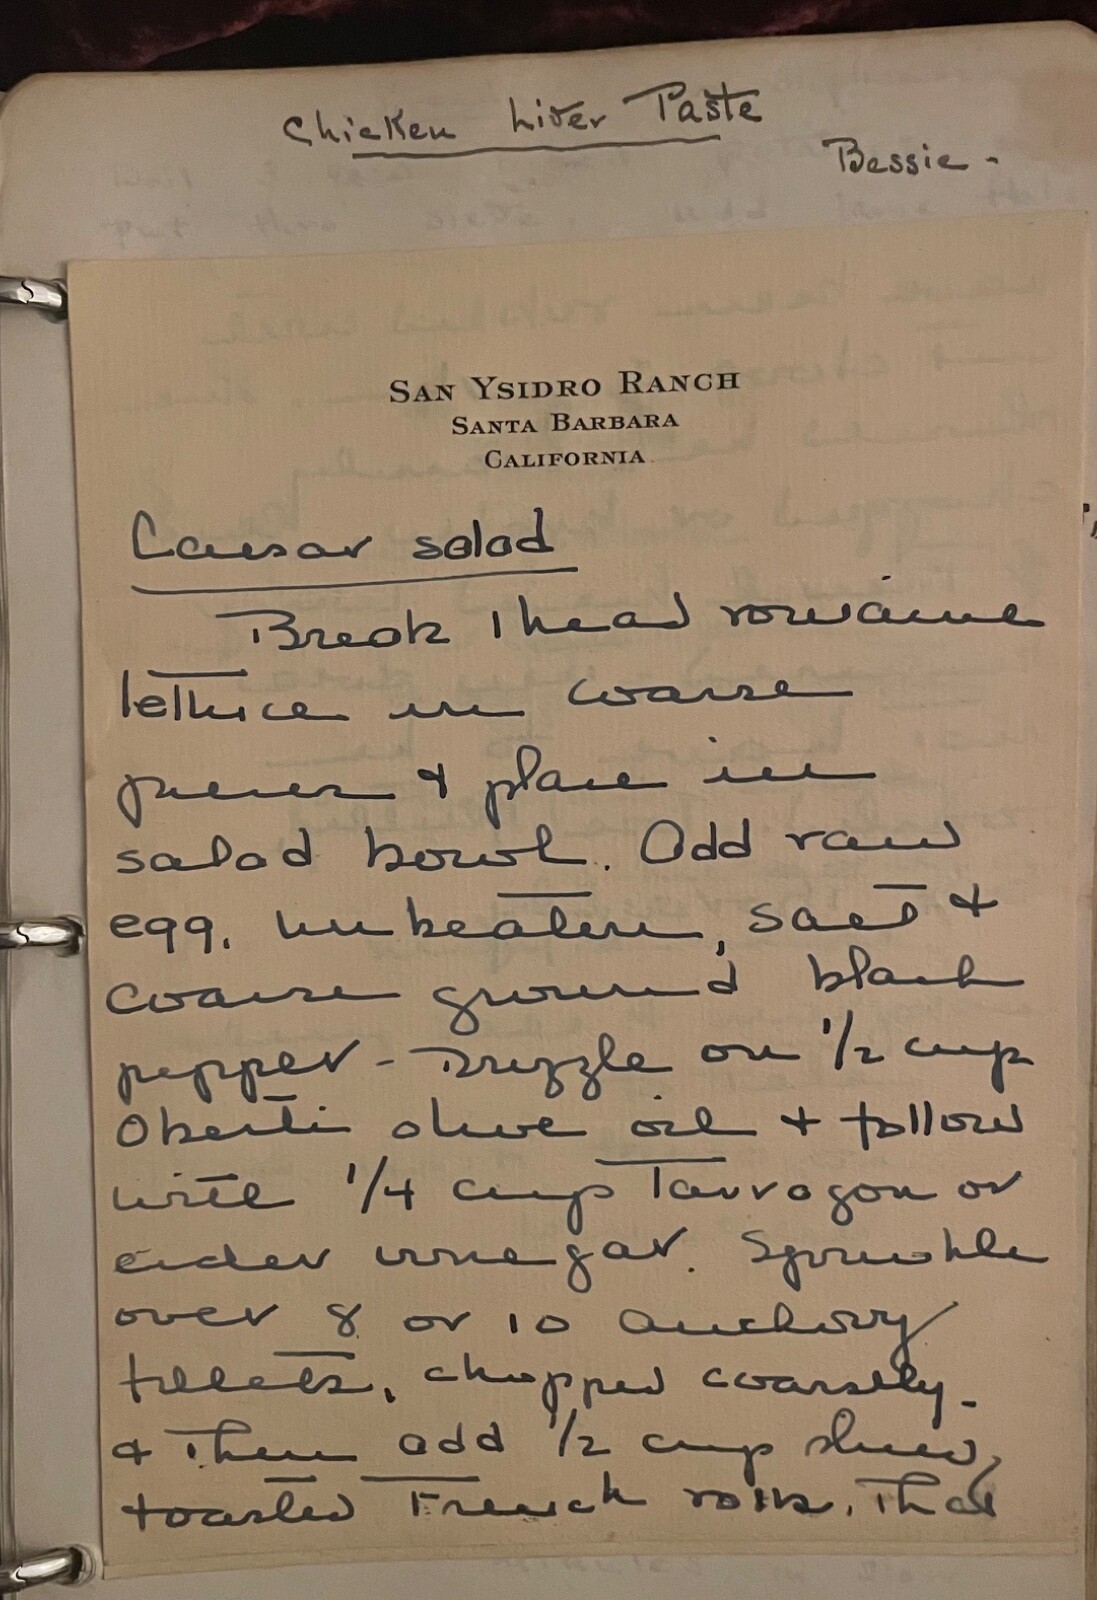 Chicken Liver Paste
Bessie -
SAN YSIDRO RANCH
SANTA BARBARA
CALIFORNIA
Caesar salad
Break 1 head romaine
lettuce in coarse
pieces & place in
salad bowl. Add raw
egg, unbeaten, salt &
coarse ground black
pepper - Drizzle on 1/2 cup
Oberti olive oil & follow
with 1/4 cup Tarragon or
cider vinegar. Sprinkle
over 8 or 10 anchovy
fillets, chopped coarsely.
& Then add 1/2 cup
toasted French rolls, That